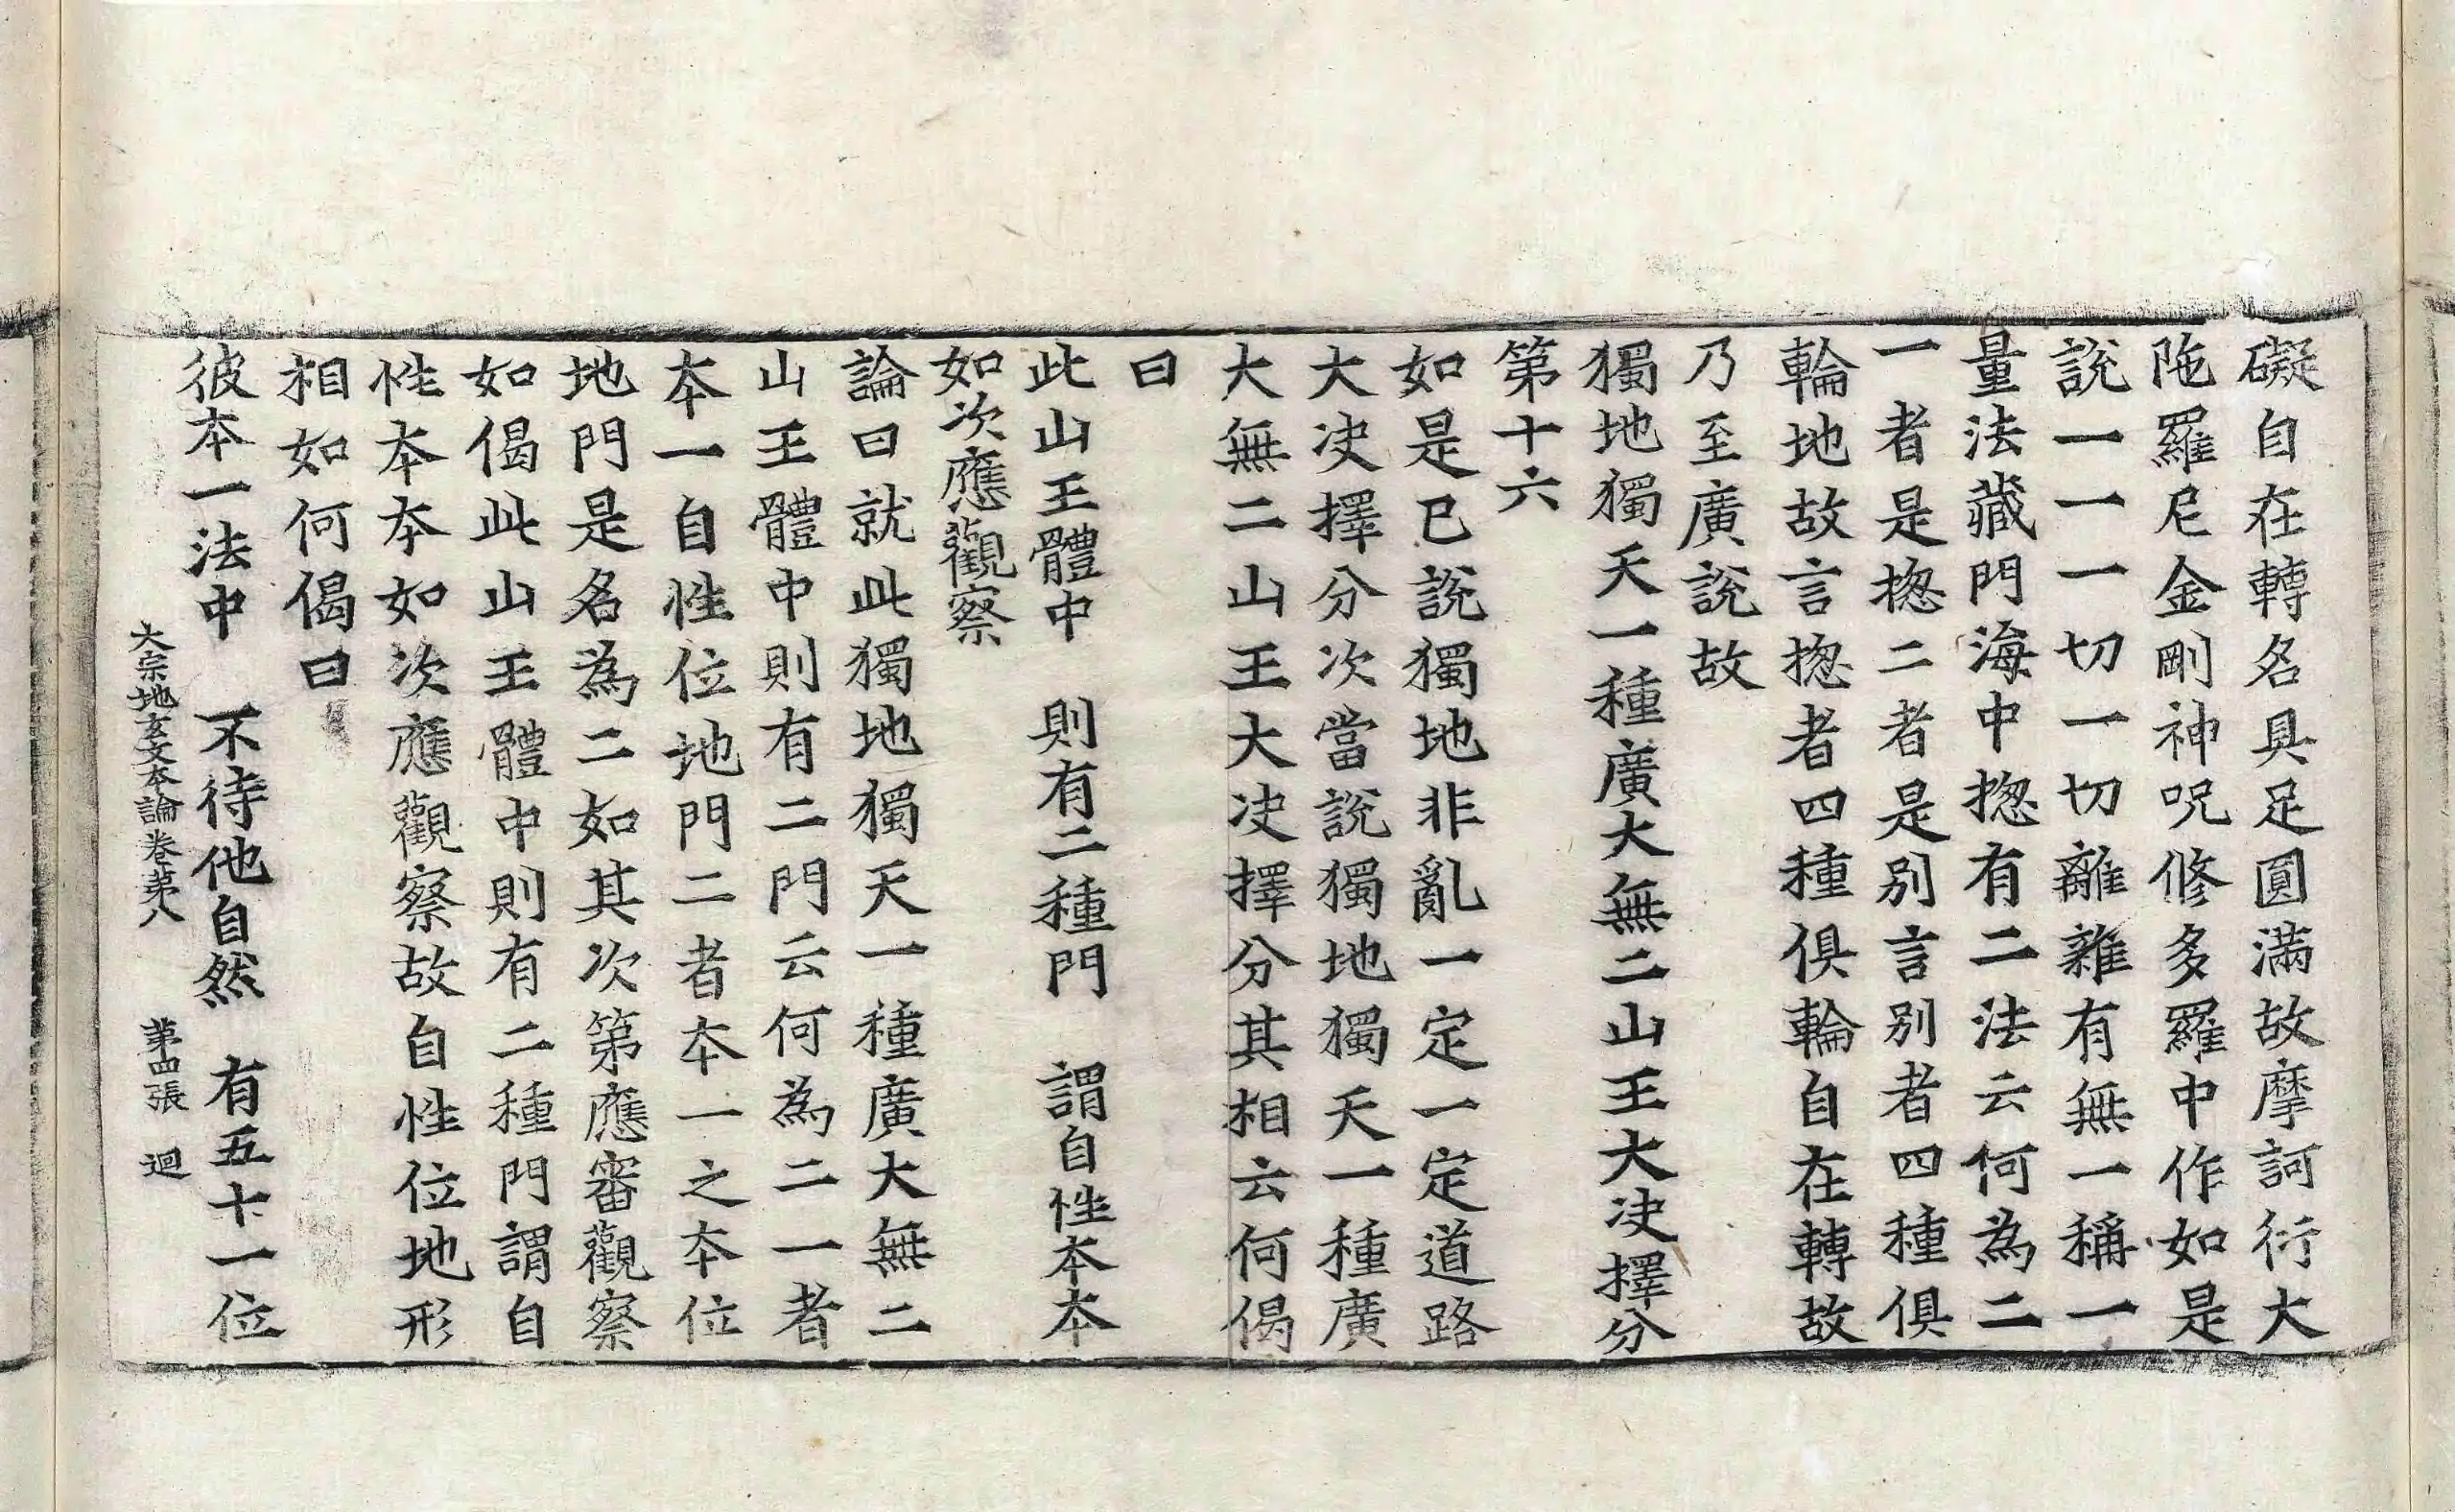 礙自在轉名具足圓滿故摩訶衍大
陁羅尼金剛神呪修多羅中作如是
說一一一切一切離雜有無一稱一
量法藏門海中揔有二法云何為二
一者是揔二者是別言別者四種俱
輪地故言揔者四種俱輪自在轉故
乃至廣說故
獨地獨天一種廣大無二山王大決擇分
第十六
如是已說獨地非亂一定一定道路
大決擇分次當說獨地獨天一種廣
大無二山王大決擇分其相云何偈
曰
此山王體中　則有二種門　謂自性本本
如次應觀察
論曰就此獨地獨天一種廣大無二
山王體中則有二門云何為二一者
本一自性位地門二者本一之本位
地門是名為二如其次第應審觀察
如偈此山王體中則有二種門謂自
性本本如次應觀察故自性位地形
相如何偈曰
彼本一法中　不待他自然　有五十一位
大宗地玄文本論卷第八　第四張　迴